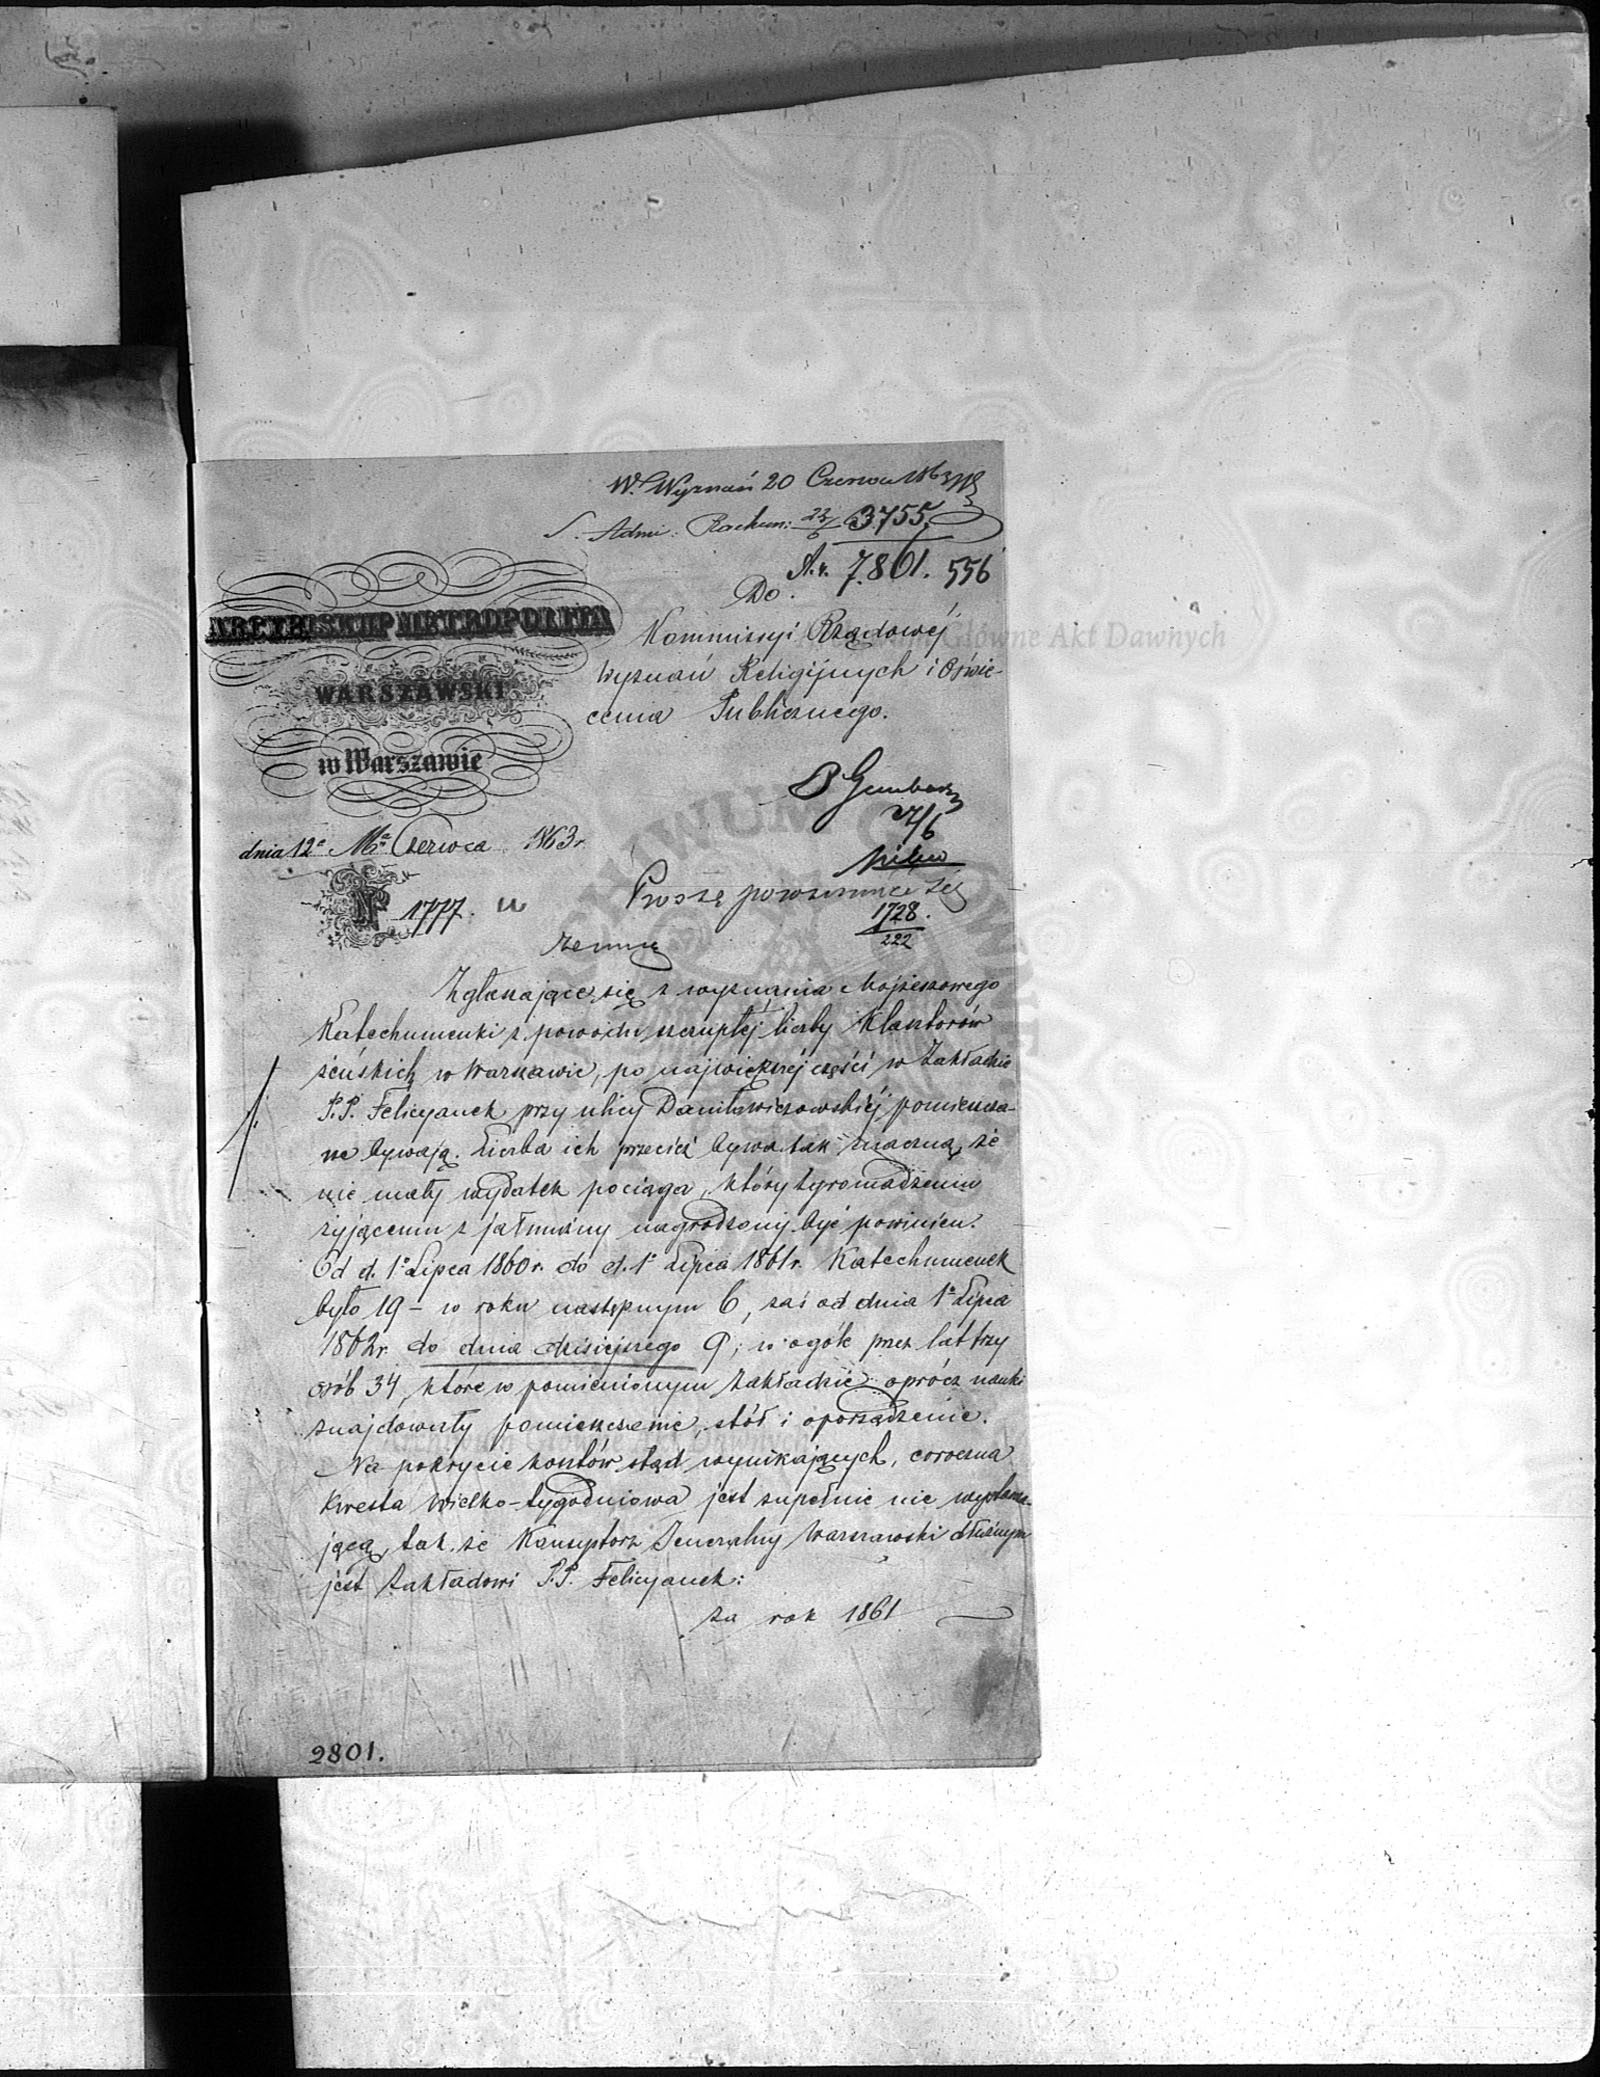 W. Wyznań 20 Czerwca 1863
S. Adm: Rachun: 22/6 3755
A.v. 7801. 556
Do
ARCYBISKUP METROPOLITA
WARSZAWSKI
w Warszawie
Kommissyi Rządowéj
Wyznań Religijnych i Oświe-
cenia Publicznego.
27/6
dnia 12º Mca Czerwca 1863 r.
Nº 1777.
Proszę porozumieć się
zemną
1728.
222
Zgłaszające się z wyznania Mojżeszowego
Katechumenki z powodu szczupłéj liczby Klasztorów
żeńskich w Warszawie, po największéj części w Zakładzie
P.P. Felicyanek przy ulicy Daniłowiczowskiéj pomieszcza-
ne bywają. Liczba ich przecież bywa tak znaczną, że
nie mały wydatek pociąga, który zgromadzeniu
żyjącemu z jałmużny nagrodzony być powinien.
Od d. 1º Lipca 1860 r. do d. 1º Lipca 1861 r. Katechumenek
było 19 – w roku następnym 6, zaś od dnia 1º Lipca
1862 r. do dnia dzisiejszego 9, w ogóle przez lat trzy
osób 34, które w pomienionym Zakładzie oprócz nauki
znajdowały pomieszczenie, stół i oporządzenie.
Na pokrycie kosztów ztąd wynikających, coroczna
Kwesta Wielko-tygodniowa jest zupełnie nie wystarcza-
jącą, tak że Konsystorz Jeneralny Warszawski dłużnym
jest Zakładowi P.P. Felicyanek:
za rok 1861
2801.